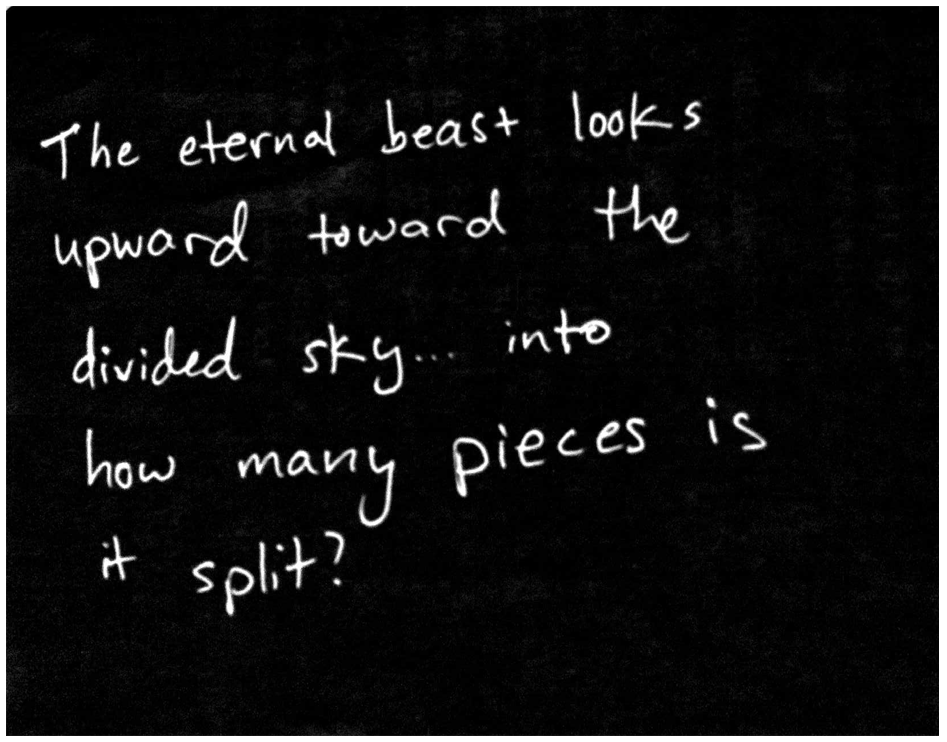 The eternal beast looks
upward toward the
divided sky... into
how many pieces is
it split?